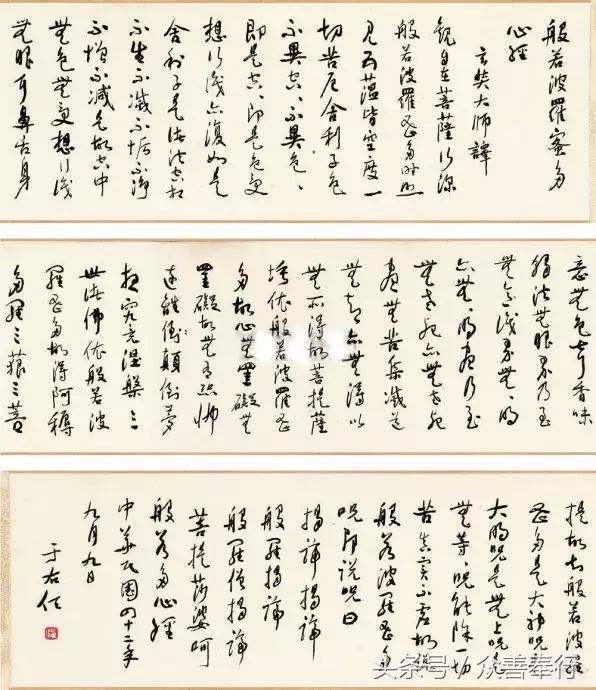 般若波羅蜜多
心經
玄奘大師譯
觀自在菩薩行深
般若波羅蜜多時照
見五蘊皆空度一
切苦厄舍利子色
不異空、不異色、
即是空、即是色受
想行識亦復如是
舍利子是諸法空相
不生不滅不垢不淨
不增不減是故空中
無色無受想行識
無眼耳鼻舌身
意無色聲香味
觸法無眼界乃至
無意識界無、明
亦無、明盡乃至
無老死亦無老死
盡無苦集滅道
無智亦無得以
無所得故菩提薩
埵依般若波羅蜜
多故心無罣礙無
罣礙故無有恐怖
遠離顛倒夢
想究竟涅槃三
世諸佛依般若波
羅蜜多故得阿耨
多羅三藐三菩
提故知般若波羅
蜜多是大神咒是
大明咒是無上咒是
無等、咒能除一切
苦真實不虛故說
般若波羅蜜多
呪即說呪曰
揭諦揭諦
般羅揭諦
般羅僧揭諦
菩提莎婆呵
般若多心經
中華民國四十二年
九月九日
于右任
头条号:众善奉行